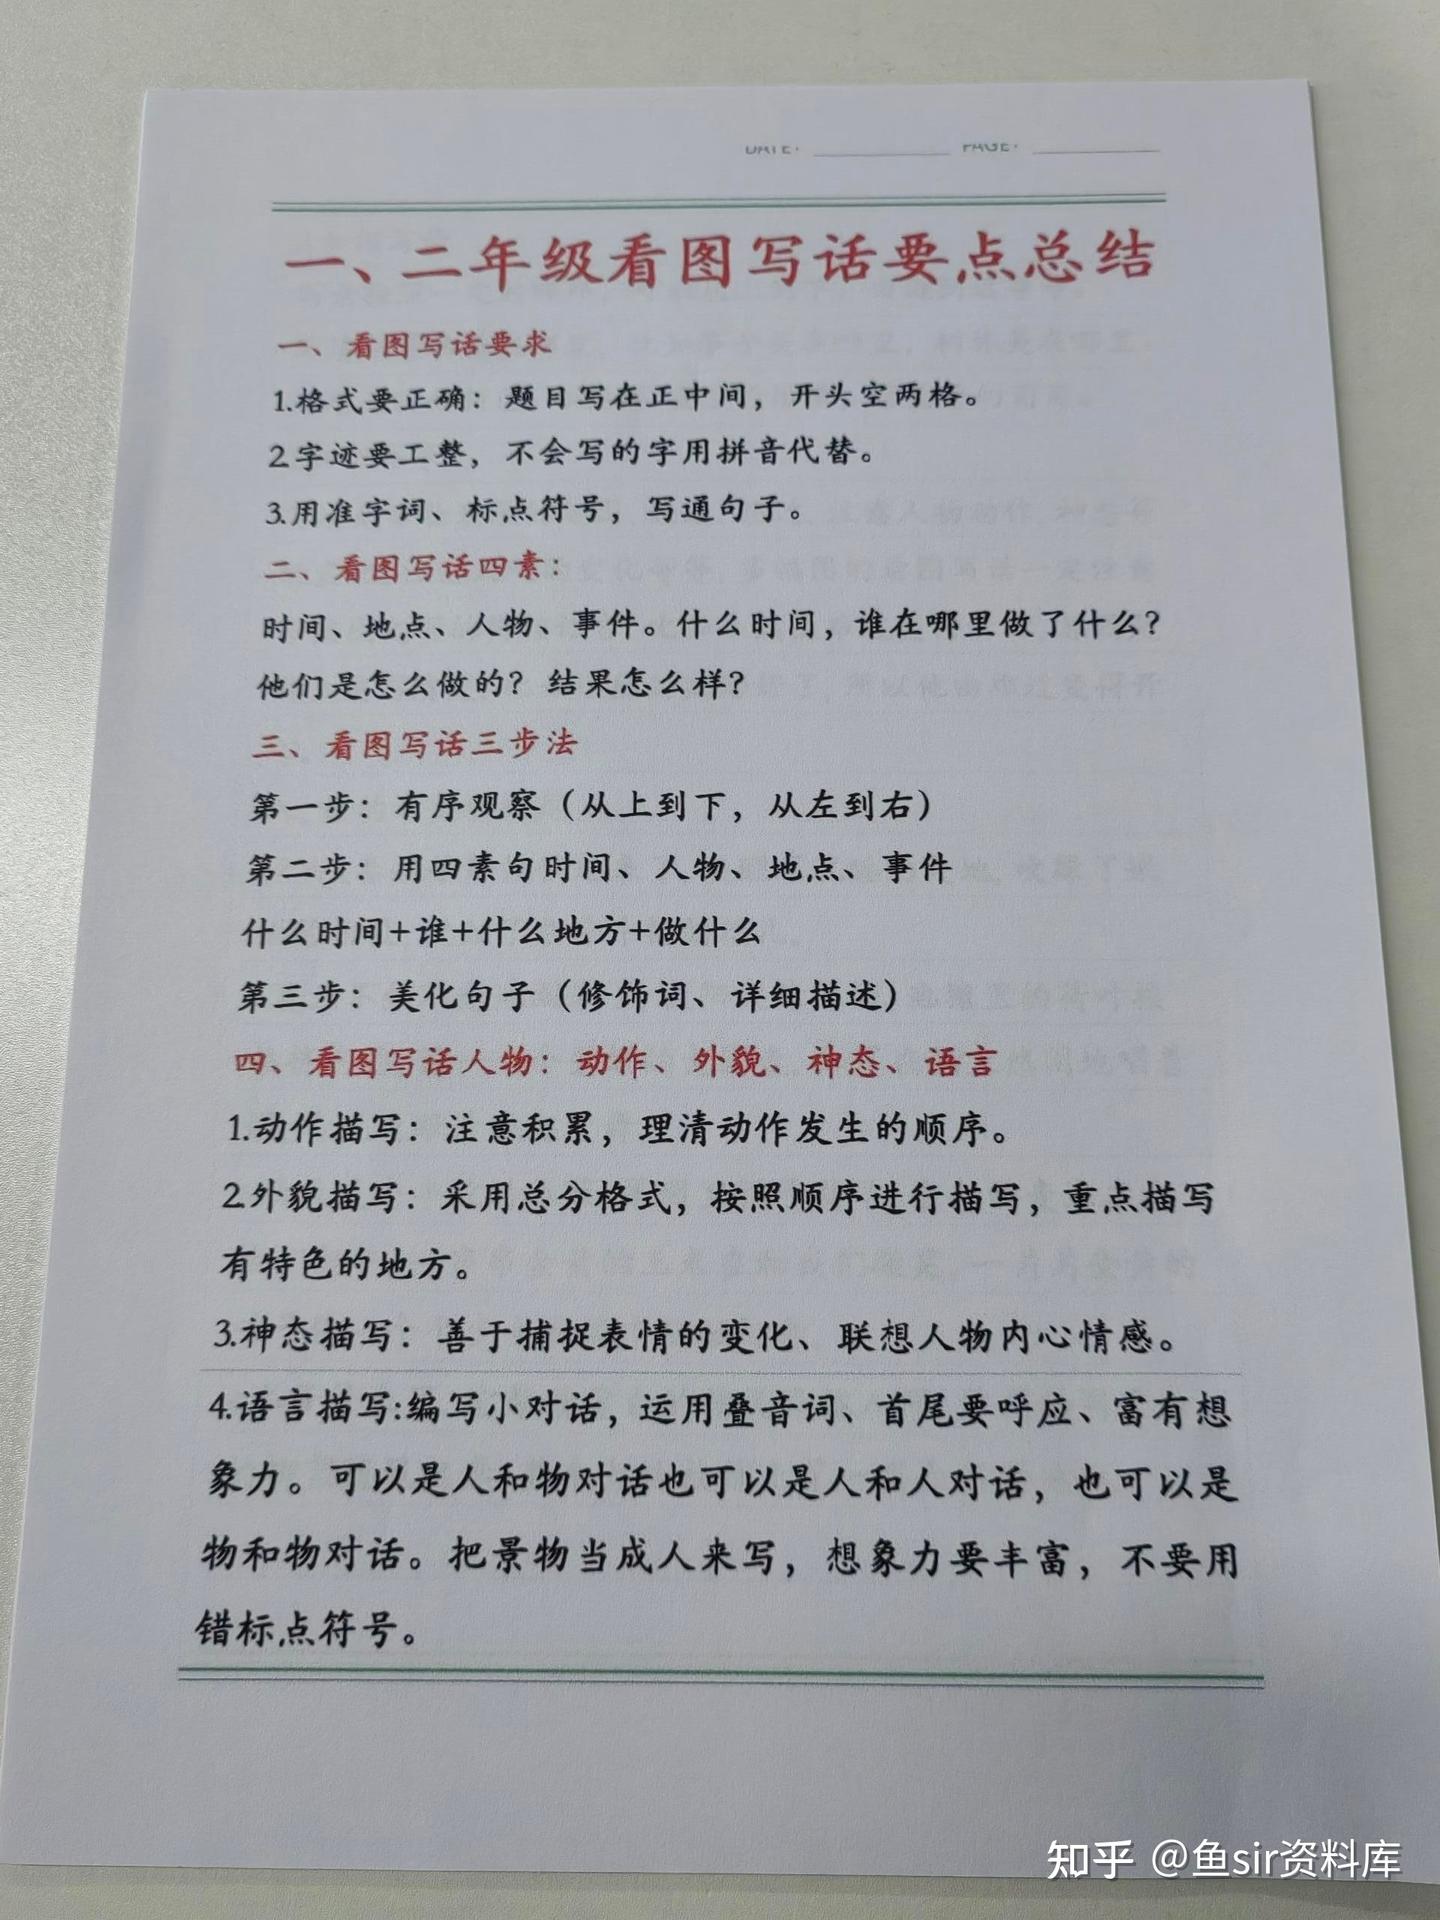 DATE: PAGE:
一、二年级看图写话要点总结
一、看图写话要求
1.格式要正确：题目写在正中间，开头空两格。
2.字迹要工整，不会写的字用拼音代替。
3.用准字词、标点符号，写通句子。
二、看图写话四素：
时间、地点、人物、事件。什么时间，谁在哪里做了什么？
他们是怎么做的？结果怎么样？
三、看图写话三步法
第一步：有序观察（从上到下，从左到右）
第二步：用四素句时间、人物、地点、事件
什么时间+谁+什么地方+做什么
第三步：美化句子（修饰词、详细描述）
四、看图写话人物：动作、外貌、神态、语言
1.动作描写：注意积累，理清动作发生的顺序。
2.外貌描写：采用总分格式，按照顺序进行描写，重点描写
有特色的地方。
3.神态描写：善于捕捉表情的变化、联想人物内心情感。
4.语言描写:编写小对话，运用叠音词、首尾要呼应、富有想
象力。可以是人和物对话也可以是人和人对话，也可以是
物和物对话。把景物当成人来写，想象力要丰富，不要用
错标点符号。
知乎 @鱼sir资料库